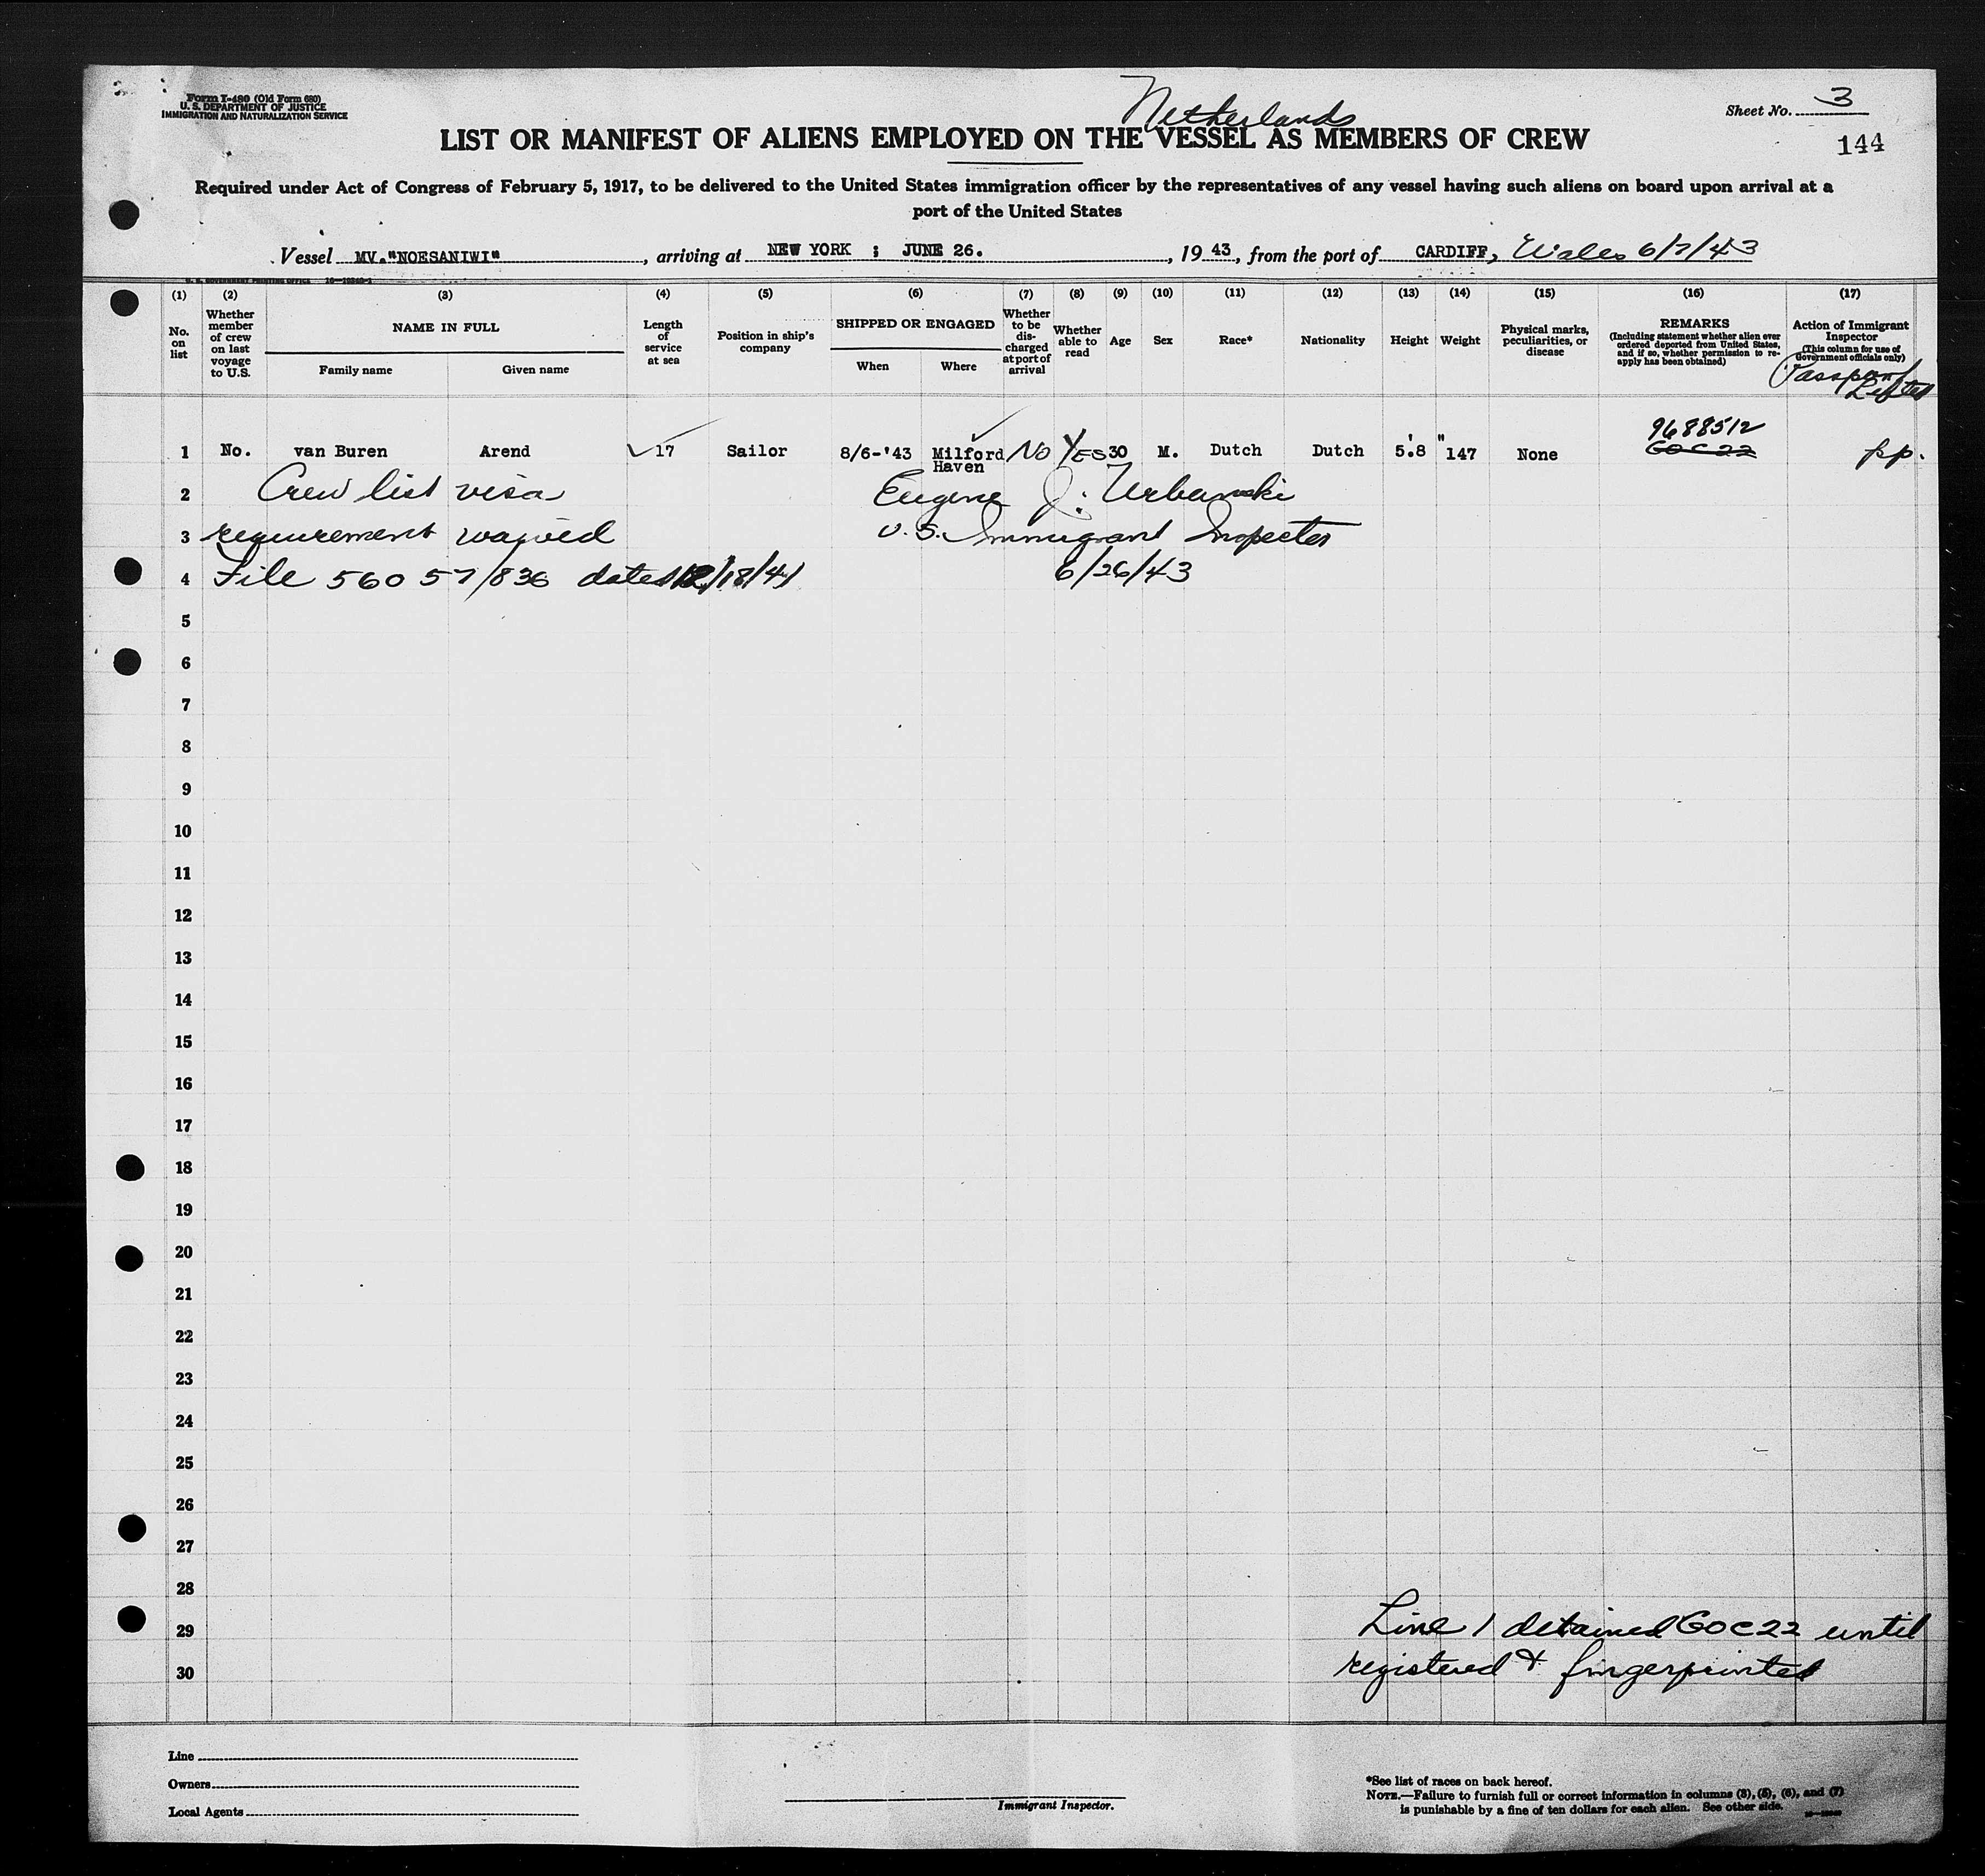 Form I-480 (Old Form 680)
U. S. DEPARTMENT OF JUSTICE
IMMIGRATION AND NATURALIZATION SERVICE
Netherlands
Sheet No. 3
LIST OR MANIFEST OF ALIENS EMPLOYED ON THE VESSEL AS MEMBERS OF CREW
144
Required under Act of Congress of February 5, 1917, to be delivered to the United States immigration officer by the representatives of any vessel having such aliens on board upon arrival at a
port of the United States
Vessel MV."NOESANIWI", arriving at NEW YORK ; JUNE 26., 1943, from the port of CARDIFF, Wales 6/7/43
U. S. GOVERNMENT PRINTING OFFICE
(1) (2) (3) (4) (5) (6) (7) (8) (9) (10) (11) (12) (13) (14) (15) (16) (17)
No. on list
Whether member of crew on last voyage to U.S.
NAME IN FULL
Family name
Given name
Length of service at sea
Position in ship's company
SHIPPED OR ENGAGED
When
Where
Whether to be discharged at port of arrival
Whether able to read
Age
Sex
Race*
Nationality
Height
Weight
Physical marks, peculiarities, or disease
REMARKS
(Including statement whether alien ever ordered deported from United States, and if so, whether permission to reapply has been obtained)
Action of Immigrant Inspector
(This column for use of Government officials only)
Passport Lifted
9688512
1 No. van Buren Arend 17 Sailor 8/6-'43 Milford Haven No Yes 30 M. Dutch Dutch 5.'8" 147 None GOC22 pp.
2 Crew list visa Eugene J. Urbanski
3 requirement waived U.S. Immigrant Inspector
4 File 56057/836 dated 12/18/41 6/26/43
5
6
7
8
9
10
11
12
13
14
15
16
17
18
19
20
21
22
23
24
25
26
27
28
29 Line 1 detained GOC22 until
30 registered & fingerprinted
Line
Owners
Local Agents
Immigrant Inspector.
*See list of races on back hereof.
NOTE.—Failure to furnish full or correct information in columns (3), (5), (6), and (7)
is punishable by a fine of ten dollars for each alien. See other side.